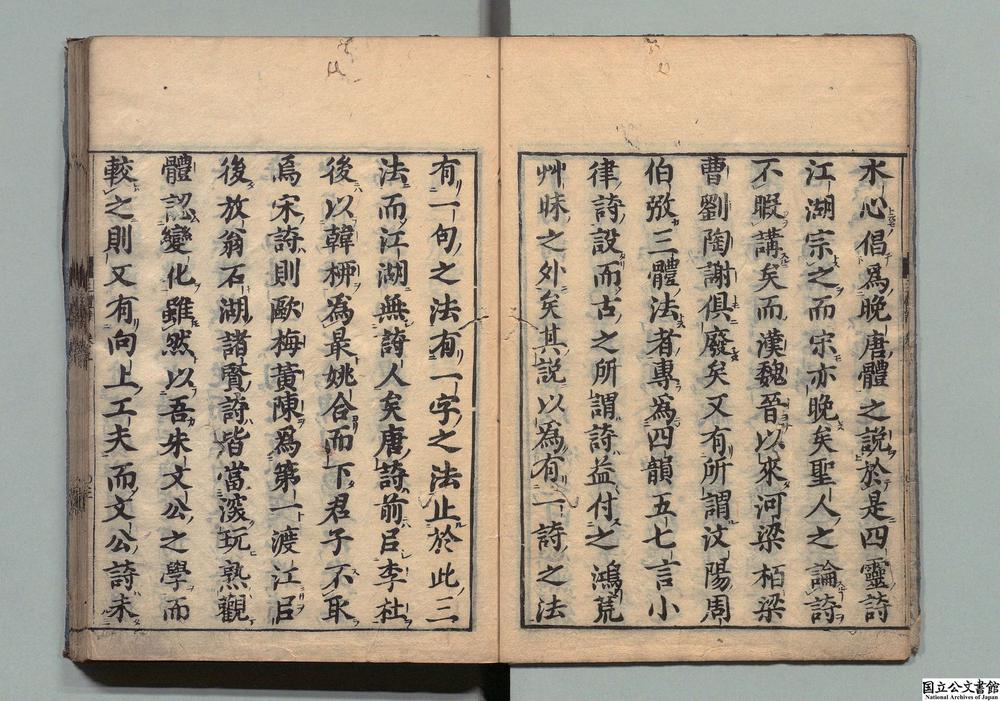 水心倡為晚唐體之說於是四靈詩
江湖宗之而宋亦晚矣聖人之論詩
不暇講矣而漢魏晉以來河梁栢梁
曹劉陶謝俱廢矣又有所謂汶陽周
伯弜三體法者專為四韻五七言小
律詩設而古之所謂詩益付之鴻荒
艸昧之外矣其說以為有一詩之法
有一句之法有一字之法止於此三
法而江湖無詩人矣唐詩前㠯李杜
後以韓栁為最姚合而下君子不取
焉宋詩則歐梅黃陳為第一渡江㠯
後放翁石湖諸賢詩皆當深玩熟觀
體認變化雖然以吾朱文公之學而
較之則又有向上工夫而文公詩未
国立公文書館
National Archives of Japan